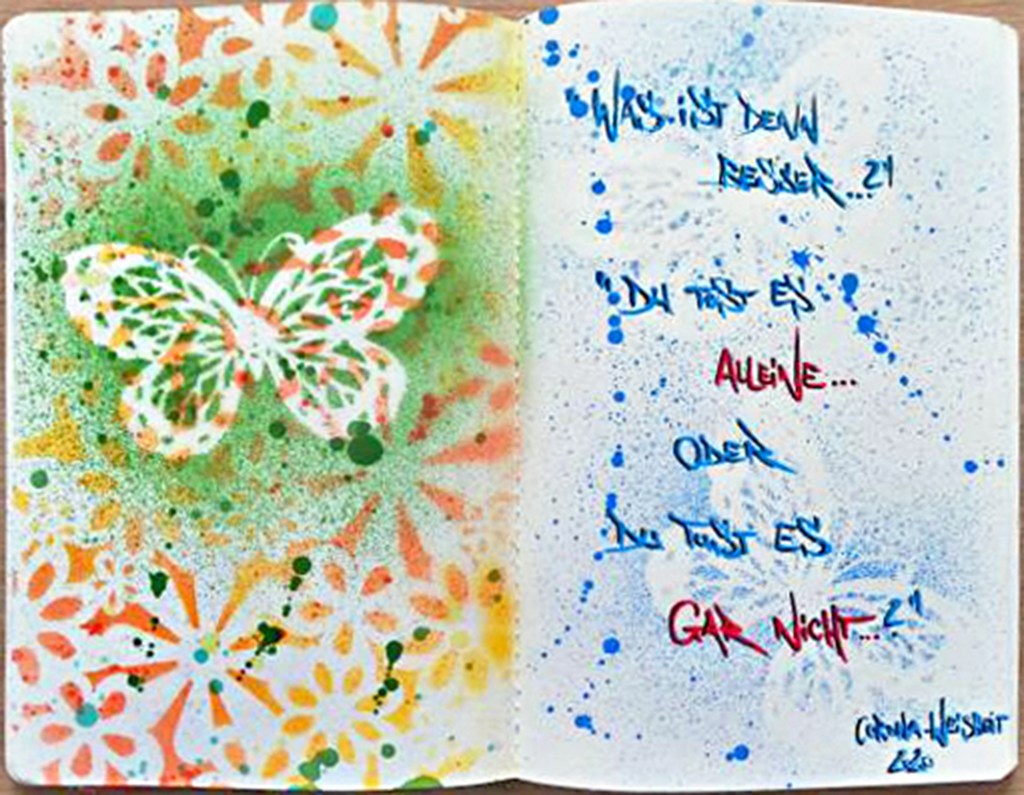 "WAS iST DENN
BESSER...?"
"DU TUST ES
ALLEiNE...
ODER
DU TUST ES
GAR NiCHT...?"
CORONA-WEISHEIT